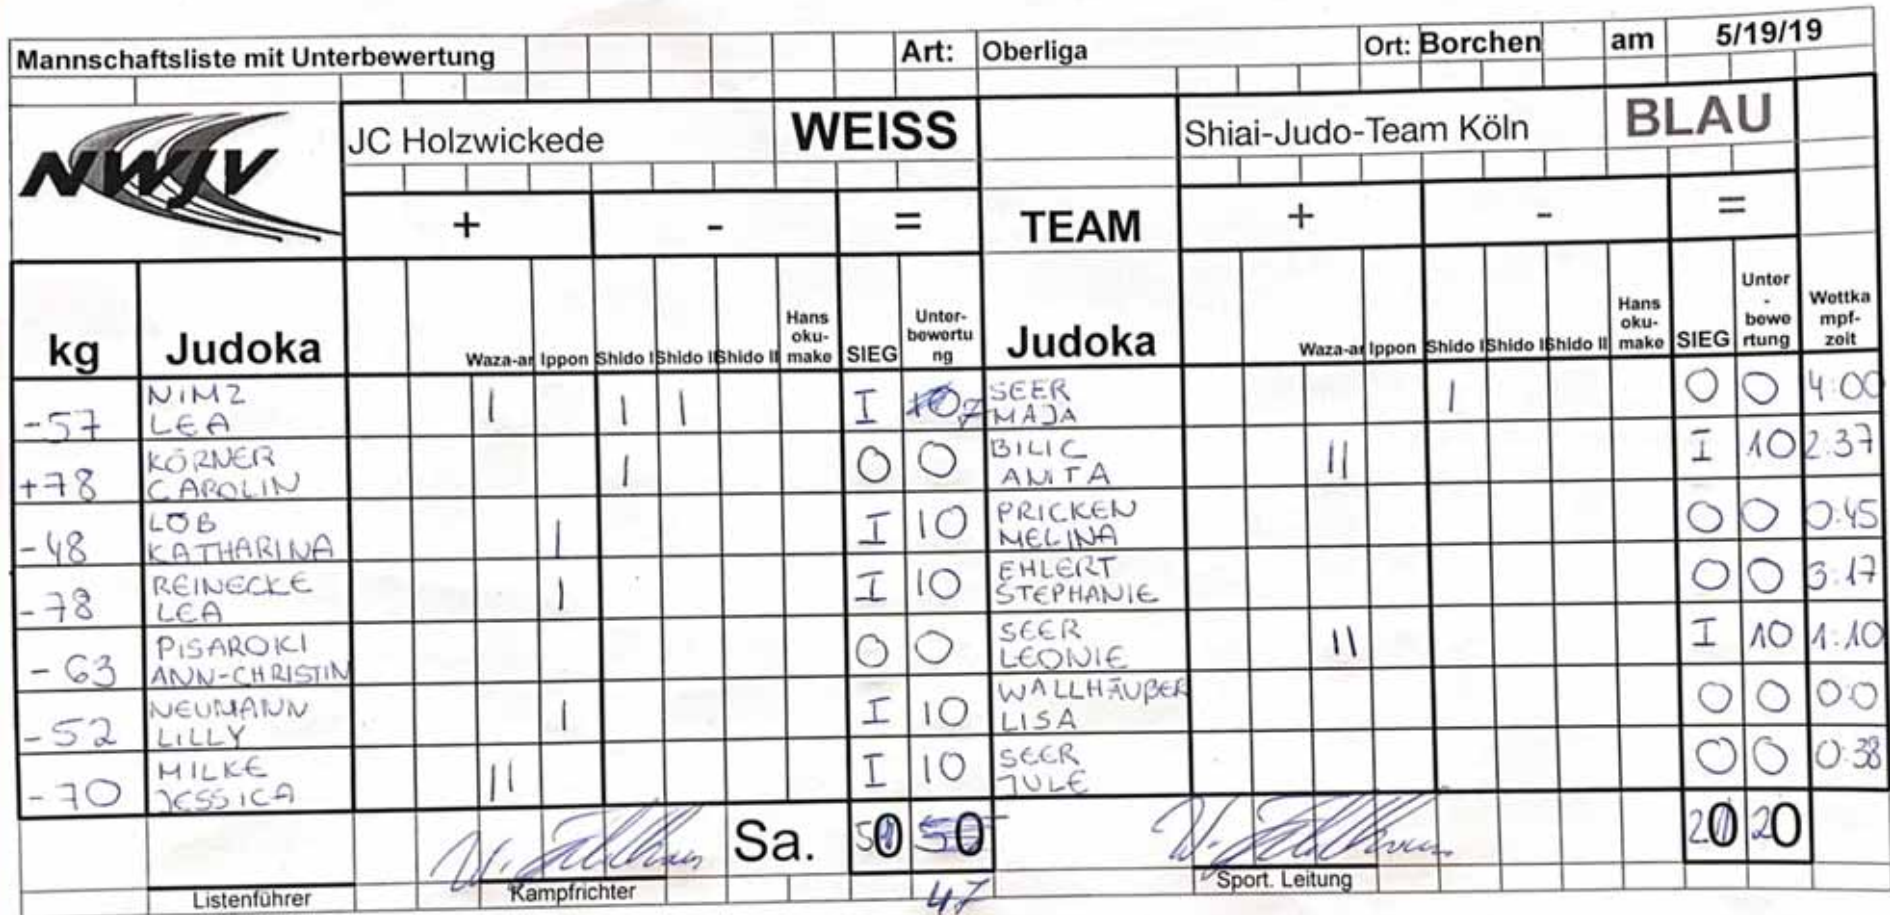 Mannschaftsliste mit Unterbewertung Art: Oberliga Ort: Borchen am 5/19/19
NWJV JC Holzwickede WEISS Shiai-Judo-Team Köln BLAU
+ - = TEAM + - =
kg Judoka Waza-ar Ippon Shido I Shido II Shido II Hans oku- make SIEG Unter- bewertu ng Judoka Waza-ar Ippon Shido I Shido II Shido II Hans oku- make SIEG Unter - bewe rtung Wettka mpf- zeit
-57 NIMZ LEA | | | I 7 SEER MAJA | 0 0 4:00
+78 KÖRNER CAROLIN | 0 0 BILIC ANITA || I 10 2:37
-48 LÖB KATHARINA | I 10 PRICKEN MELINA 0 0 0:45
-78 REINECKE LEA | I 10 EHLERT STEPHANIE 0 0 3:17
-63 PISAROKI ANN-CHRISTIN 0 0 SEER LEONIE || I 10 1:10
-52 NEUMANN LILLY | I 10 WALLHÄUßER LISA 0 0 0:0
-70 MILKE JESSICA || I 10 SEER JULE 0 0 0:38
Sa. 50 50 20 20
Listenführer Kampfrichter 47 Sport. Leitung